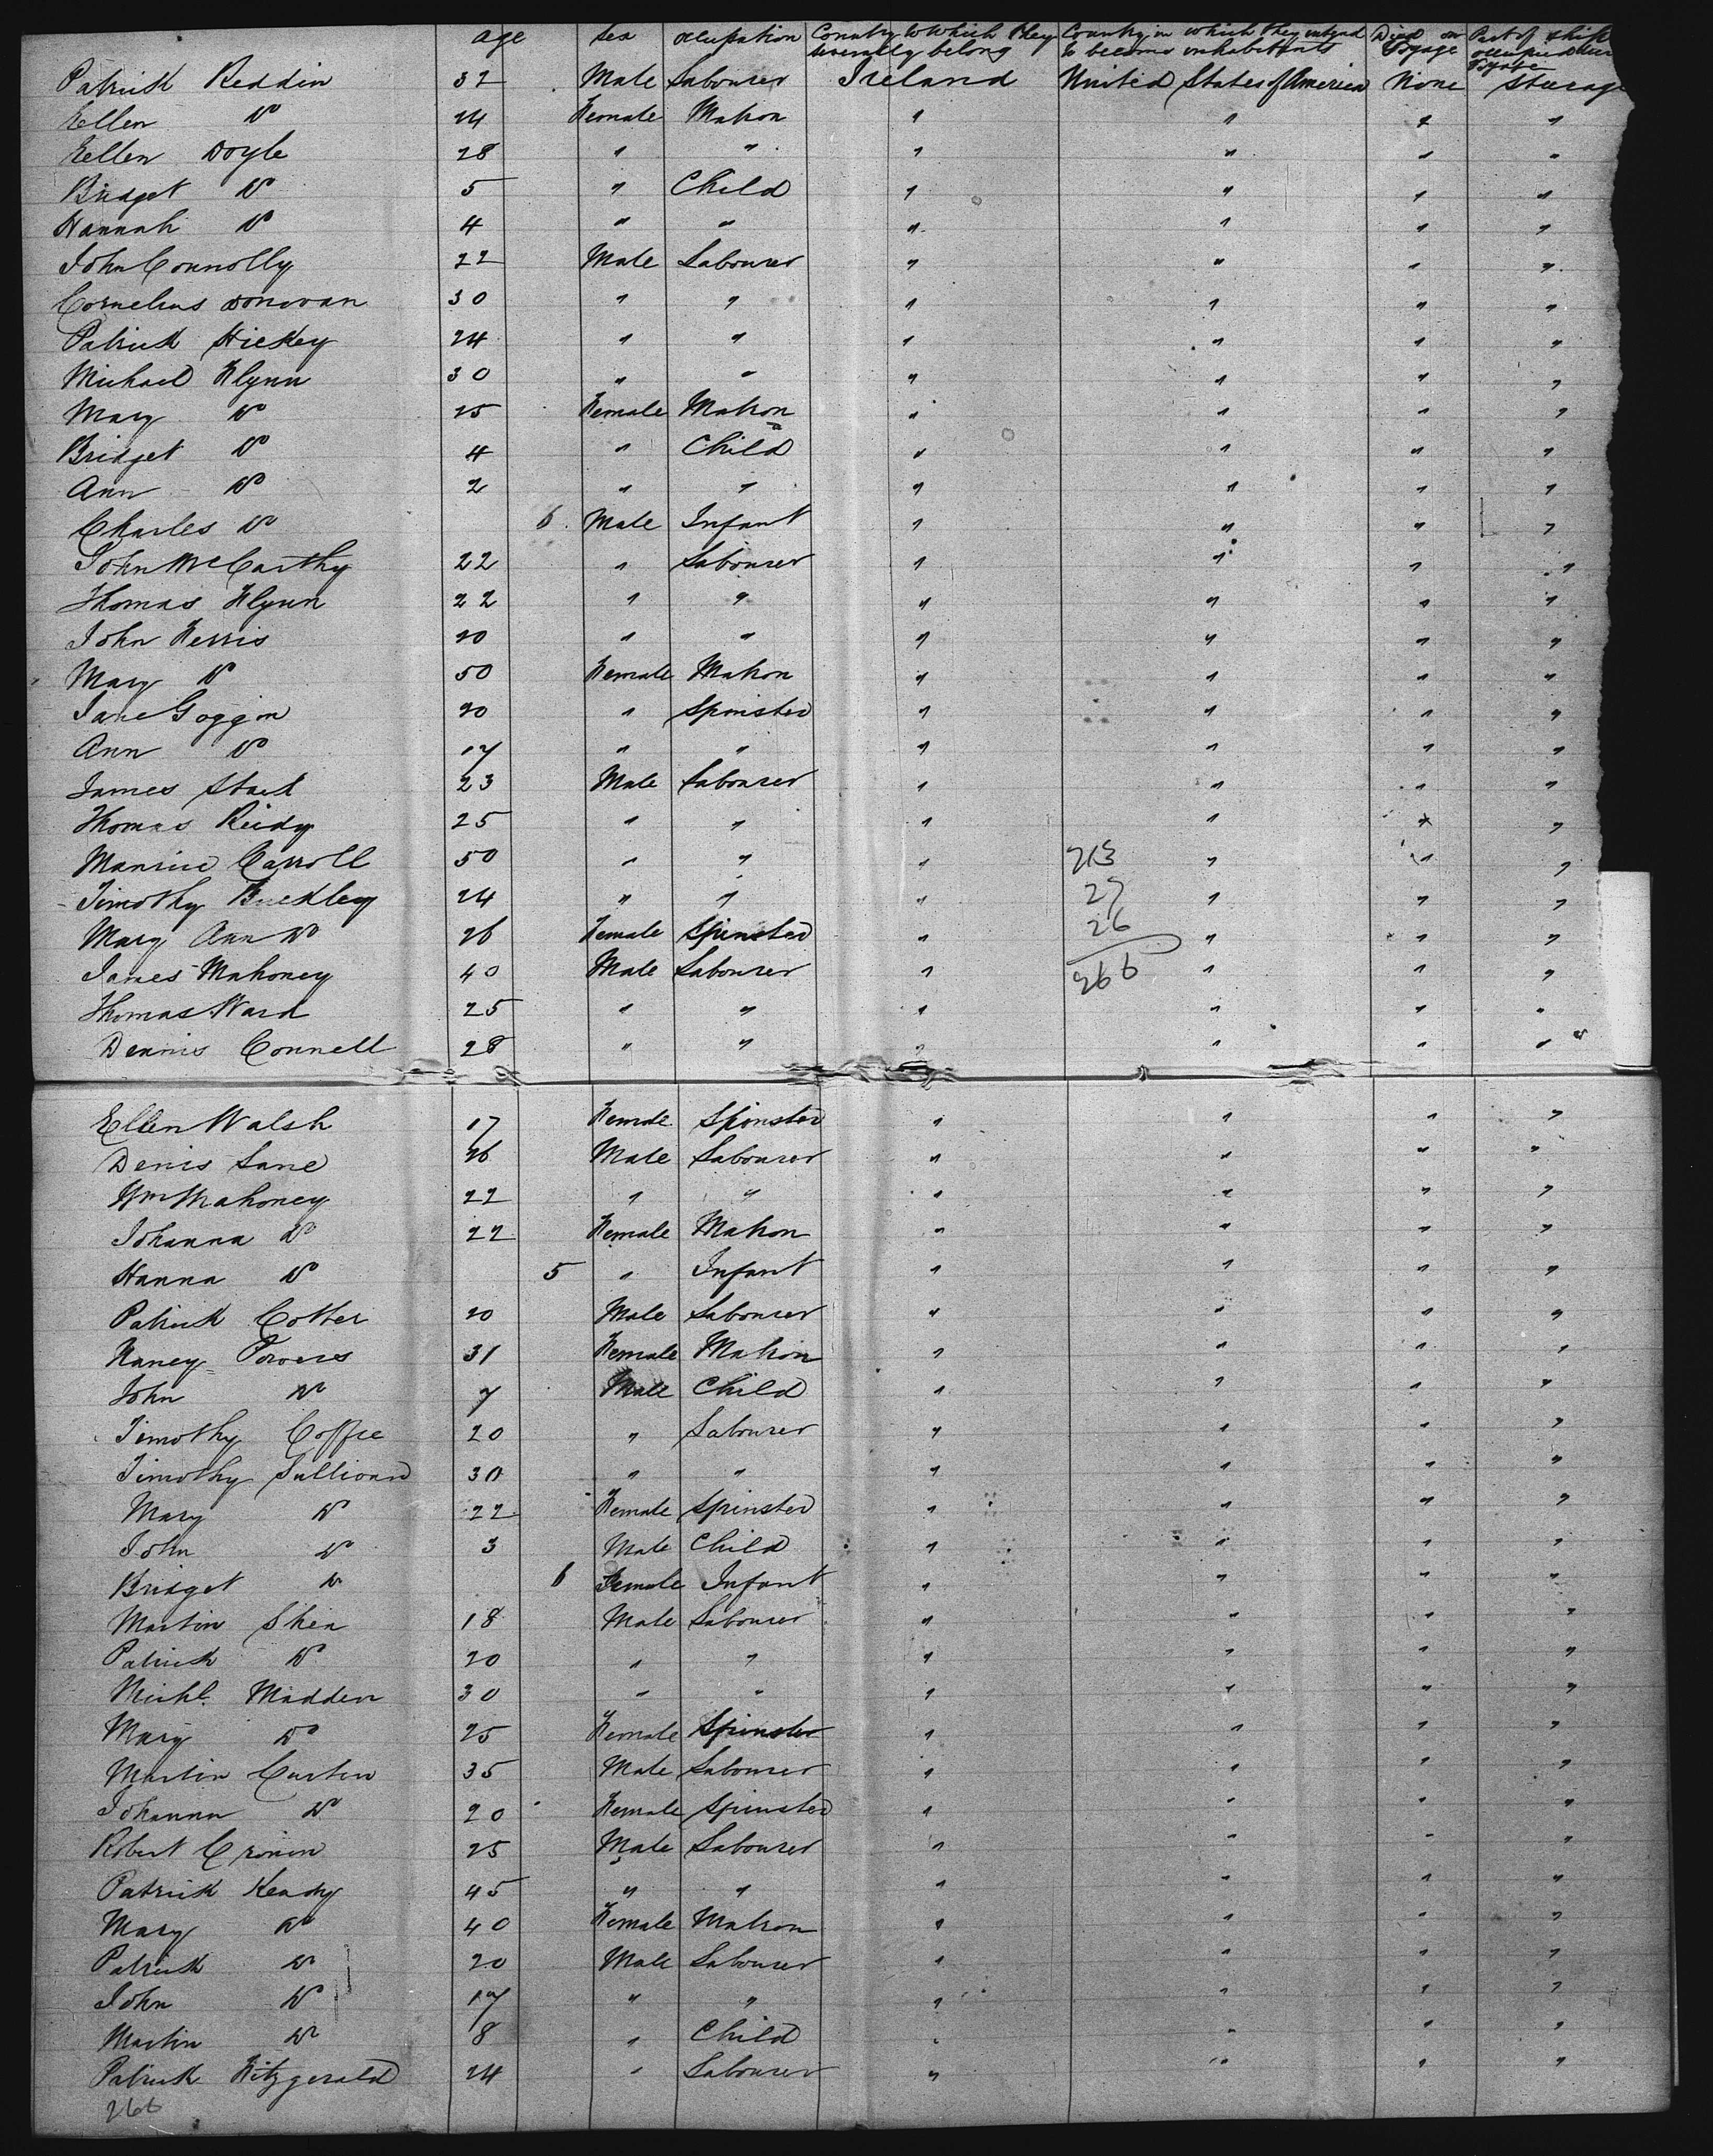 age sex occupation Country to which they severally belong Country in which they intend to become inhabitants Died on Voyage Part of ship occupied Voyage
Patrick Reddin 32 Male Labourer Ireland United States of America None Steerage
Ellen Do 24 Female Matron " " " "
Ellen Doyle 28 " " " " " "
Bridget Do 5 " Child " " " "
Hannah Do 4 " " " " " "
John Connolly 22 Male Labourer " " " "
Cornelius Donovan 30 " " " " " "
Patrick Hickey 24 " " " " " "
Michael Flynn 30 " " " " " "
Mary Do 25 Female Matron " " " "
Bridget Do 4 " Child " " " "
Ann Do 2 " " " " " "
Charles Do 6 Male Infant " " " "
John McCarthy 22 " Labourer " " " "
Thomas Flynn 22 " " " " " "
John Ferris 20 " " " " " "
Mary Do 50 Female Matron " " " "
Jane Goggin 20 " Spinster " " " "
Ann Do 17 " " " " " "
James Stack 23 Male Labourer " " " "
Thomas Reidy 25 " " " " " "
Maurice Carroll 50 " " " 213 " " "
Timothy Buckley 24 " " " 27 " " "
Mary Ann Do 26 Female Spinster " 26 " " "
James Mahoney 40 Male Labourer " 266 " " "
Thomas Ward 25 " " " " " "
Dennis Connell 28 " " " " " "
Ellen Walsh 17 Female Spinster " " " "
Denis Lane 26 Male Labourer " " " "
Wm Mahoney 22 " " " " " "
Johanna Do 22 Female Matron " " " "
Hanna Do 5 " Infant " " " "
Patrick Cotter 20 Male Labourer " " " "
Nancy Powers 31 Female Matron " " " "
John Do 7 Male Child " " " "
Timothy Coffee 20 " Labourer " " " "
Timothy Sullivan 30 " " " " " "
Mary Do 22 Female Spinster " " " "
John Do 3 Male Child " " " "
Bridget Do 6 Female Infant " " " "
Martin Shea 18 Male Labourer " " " "
Patrick Do 20 " " " " " "
Michl. Madden 30 " " " " " "
Mary Do 25 Female Spinster " " " "
Martin Curtin 35 Male Labourer " " " "
Johanna Do 20 Female Spinster " " " "
Robert Cronin 25 Male Labourer " " " "
Patrick Keady 45 " " " " " "
Mary Do 40 Female Matron " " " "
Patrick Do 20 Male Labourer " " " "
John Do 17 " " " " " "
Martin Do 8 " Child " " " "
Patrick Fitzgerald 24 " Labourer " " " "
266